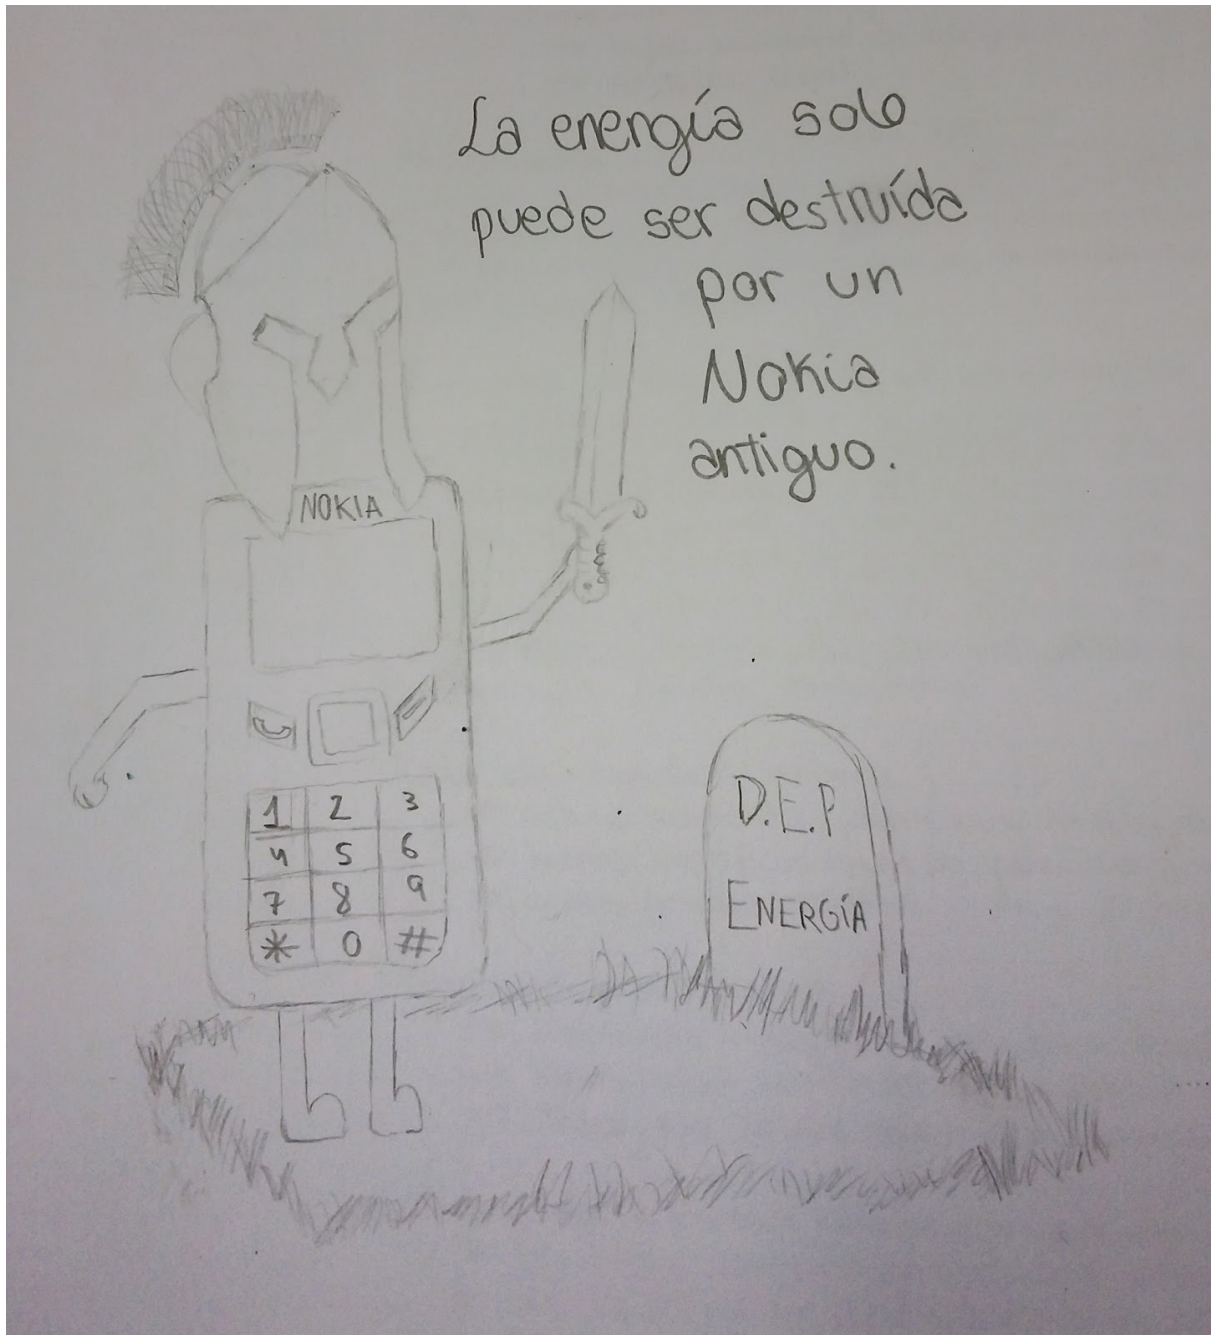 La energía solo
puede ser destruída
por un
Nokia
antiguo.
NOKIA
1 2 3
4 5 6
7 8 9
* 0 #
D.E.P
ENERGÍA